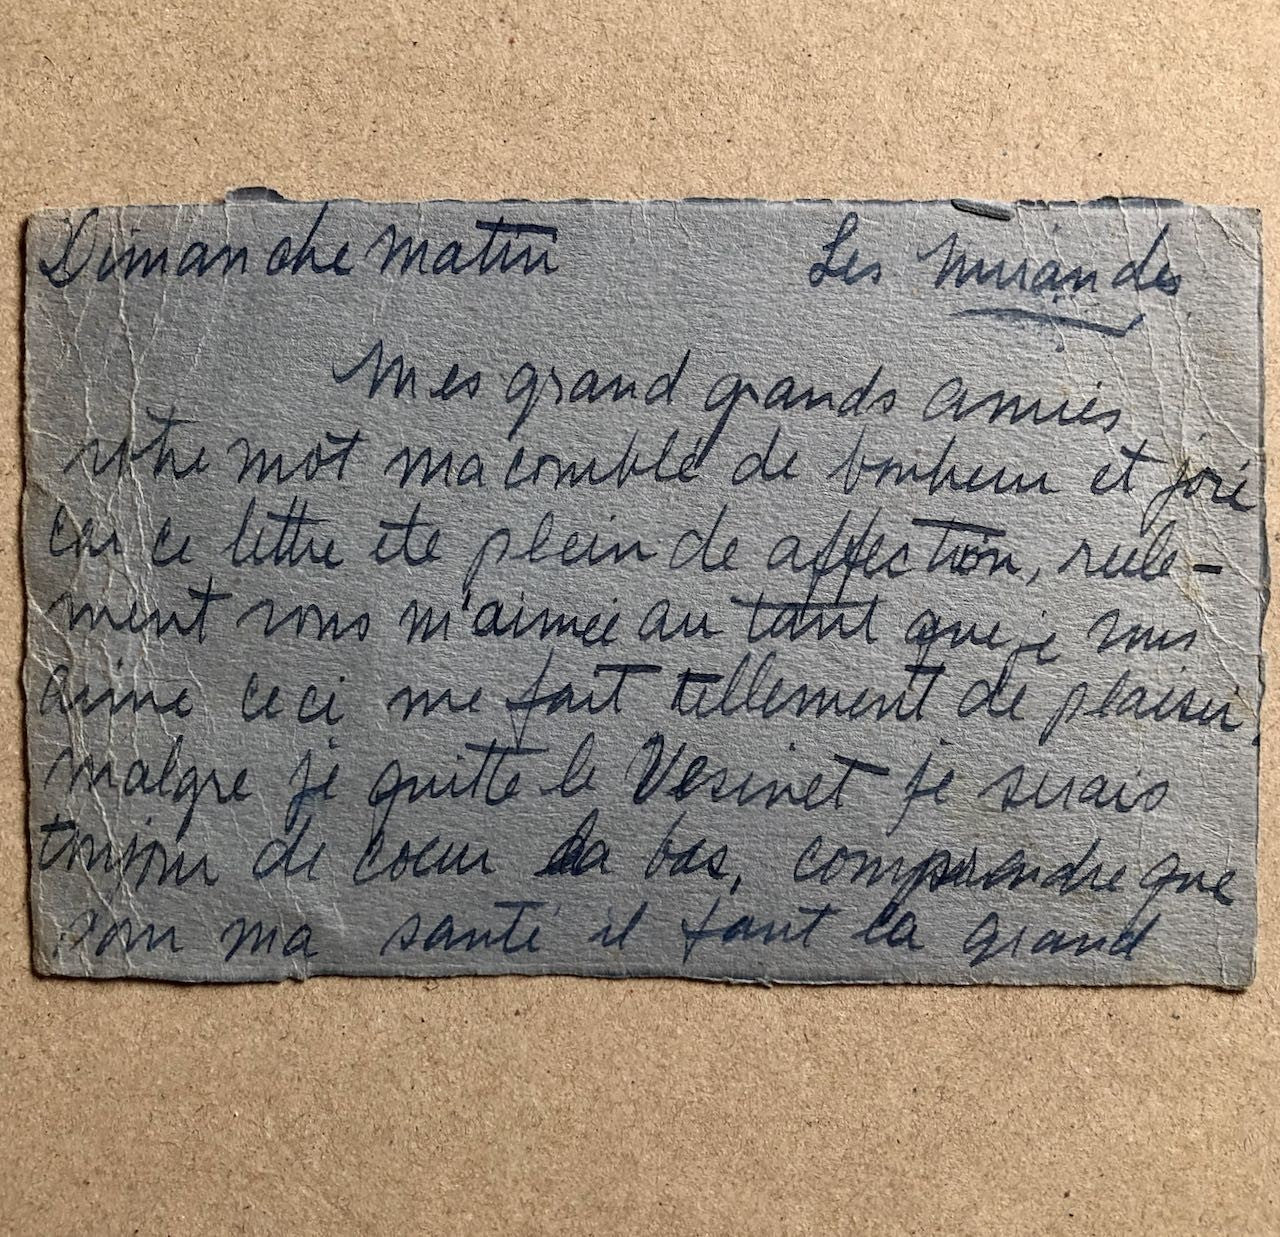 Dimanche matin Les Mirandes
Mes grand grands amies
votre mot ma comblé de bonheur et joie
car ce lettre ete plein de affection, reele-
ment vous m'aimée au tant que je vous
aime ceci me fait tellement de plaisir,
malgre je quitte le Vesinet je serais
toujour de coeur la bas, comprendre que
pour ma santé il faut la grand